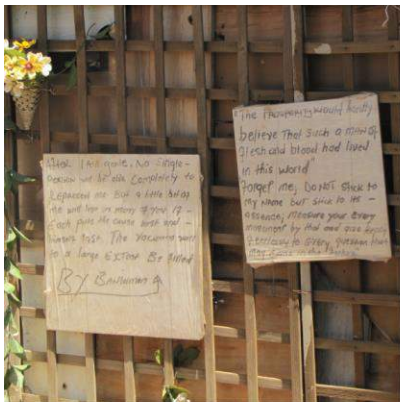 After I am gone, No Single-
person will be able completely to
Represent me But a little bit of
me will live in many of you. If-
Each puts the cause first and -
himself last. The vacuum will
to a large Extent Be filled
By
"The Posterity would hardly
believe That such a man of
Flesh and blood had lived
in this world"
Forget me, DO NOT Stick to
my Name but stick to its -
essence, measure your Every
movement by that and give Reply
fearlessly to Every, question that
may